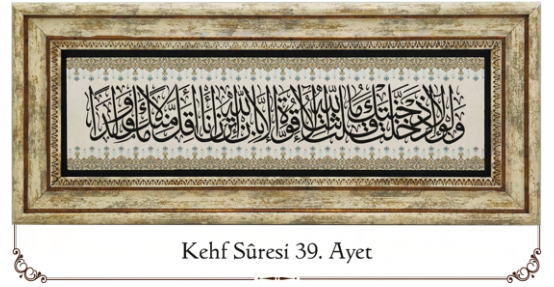 ولولا إذ دخلت جنتك قلت ما شاء الله لا قوة إلا بالله إن ترن أنا أقل منك مالا وولدا
Kehf Sûresi 39. Ayet